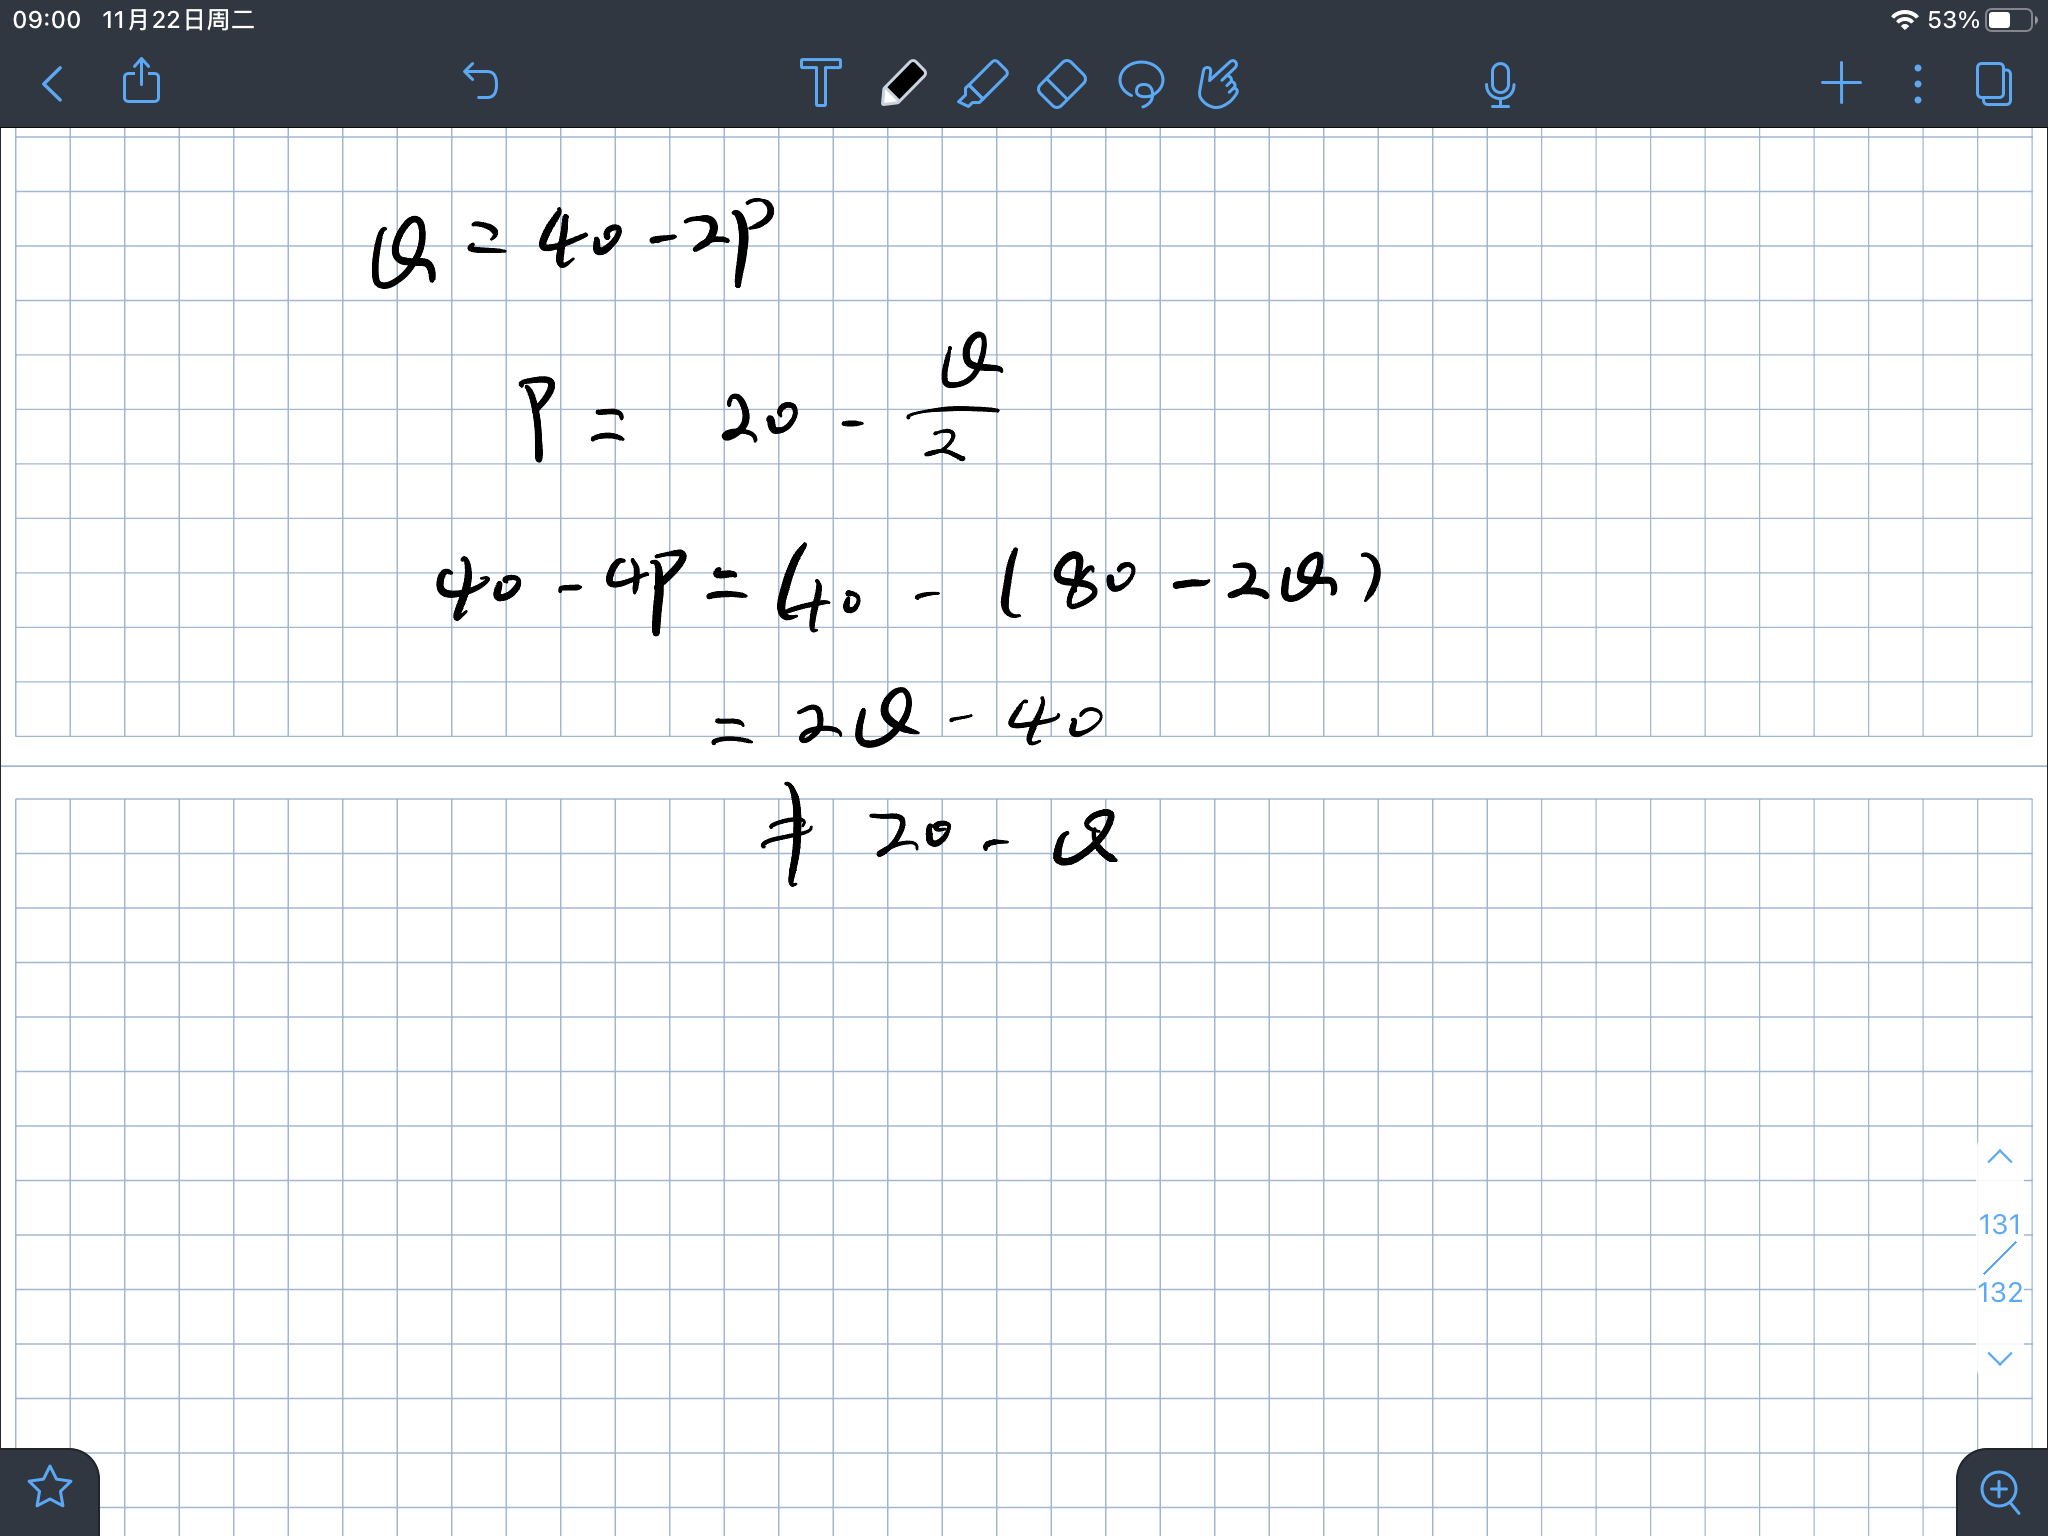 09:00 11月22日周二 53%
T
Q = 40 - 2P
P = 20 - Q/2
40 - 4P = 40 - (80 - 2Q)
= 2Q - 40
≠ 20 - Q
131
/
132